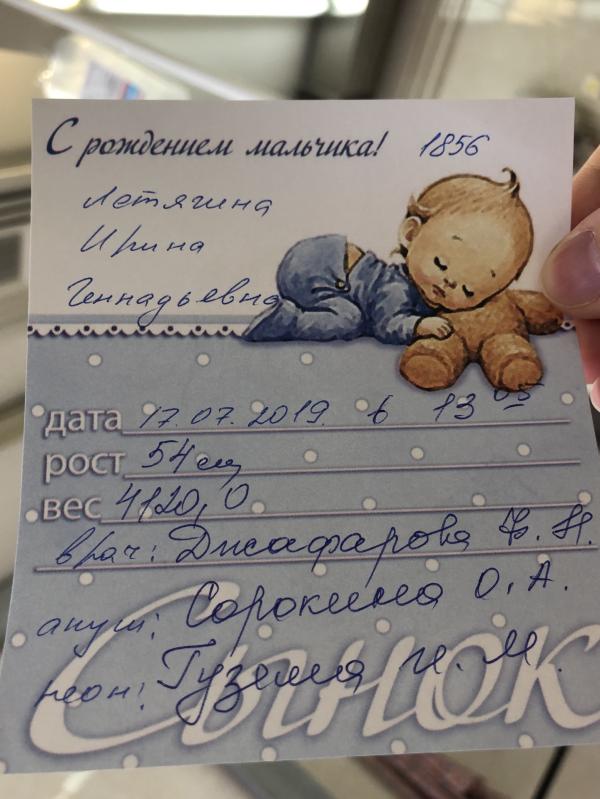 С рождением мальчика! 1856
Летягина
Ирина
Геннадьевна
дата 17.07.2019. в 13 05
рост 54 см
вес 4120,0
врач: Джафарова Ф. Н.
акуш: Сорокина О. А.
неон: Гуземя И. М.
Сынок